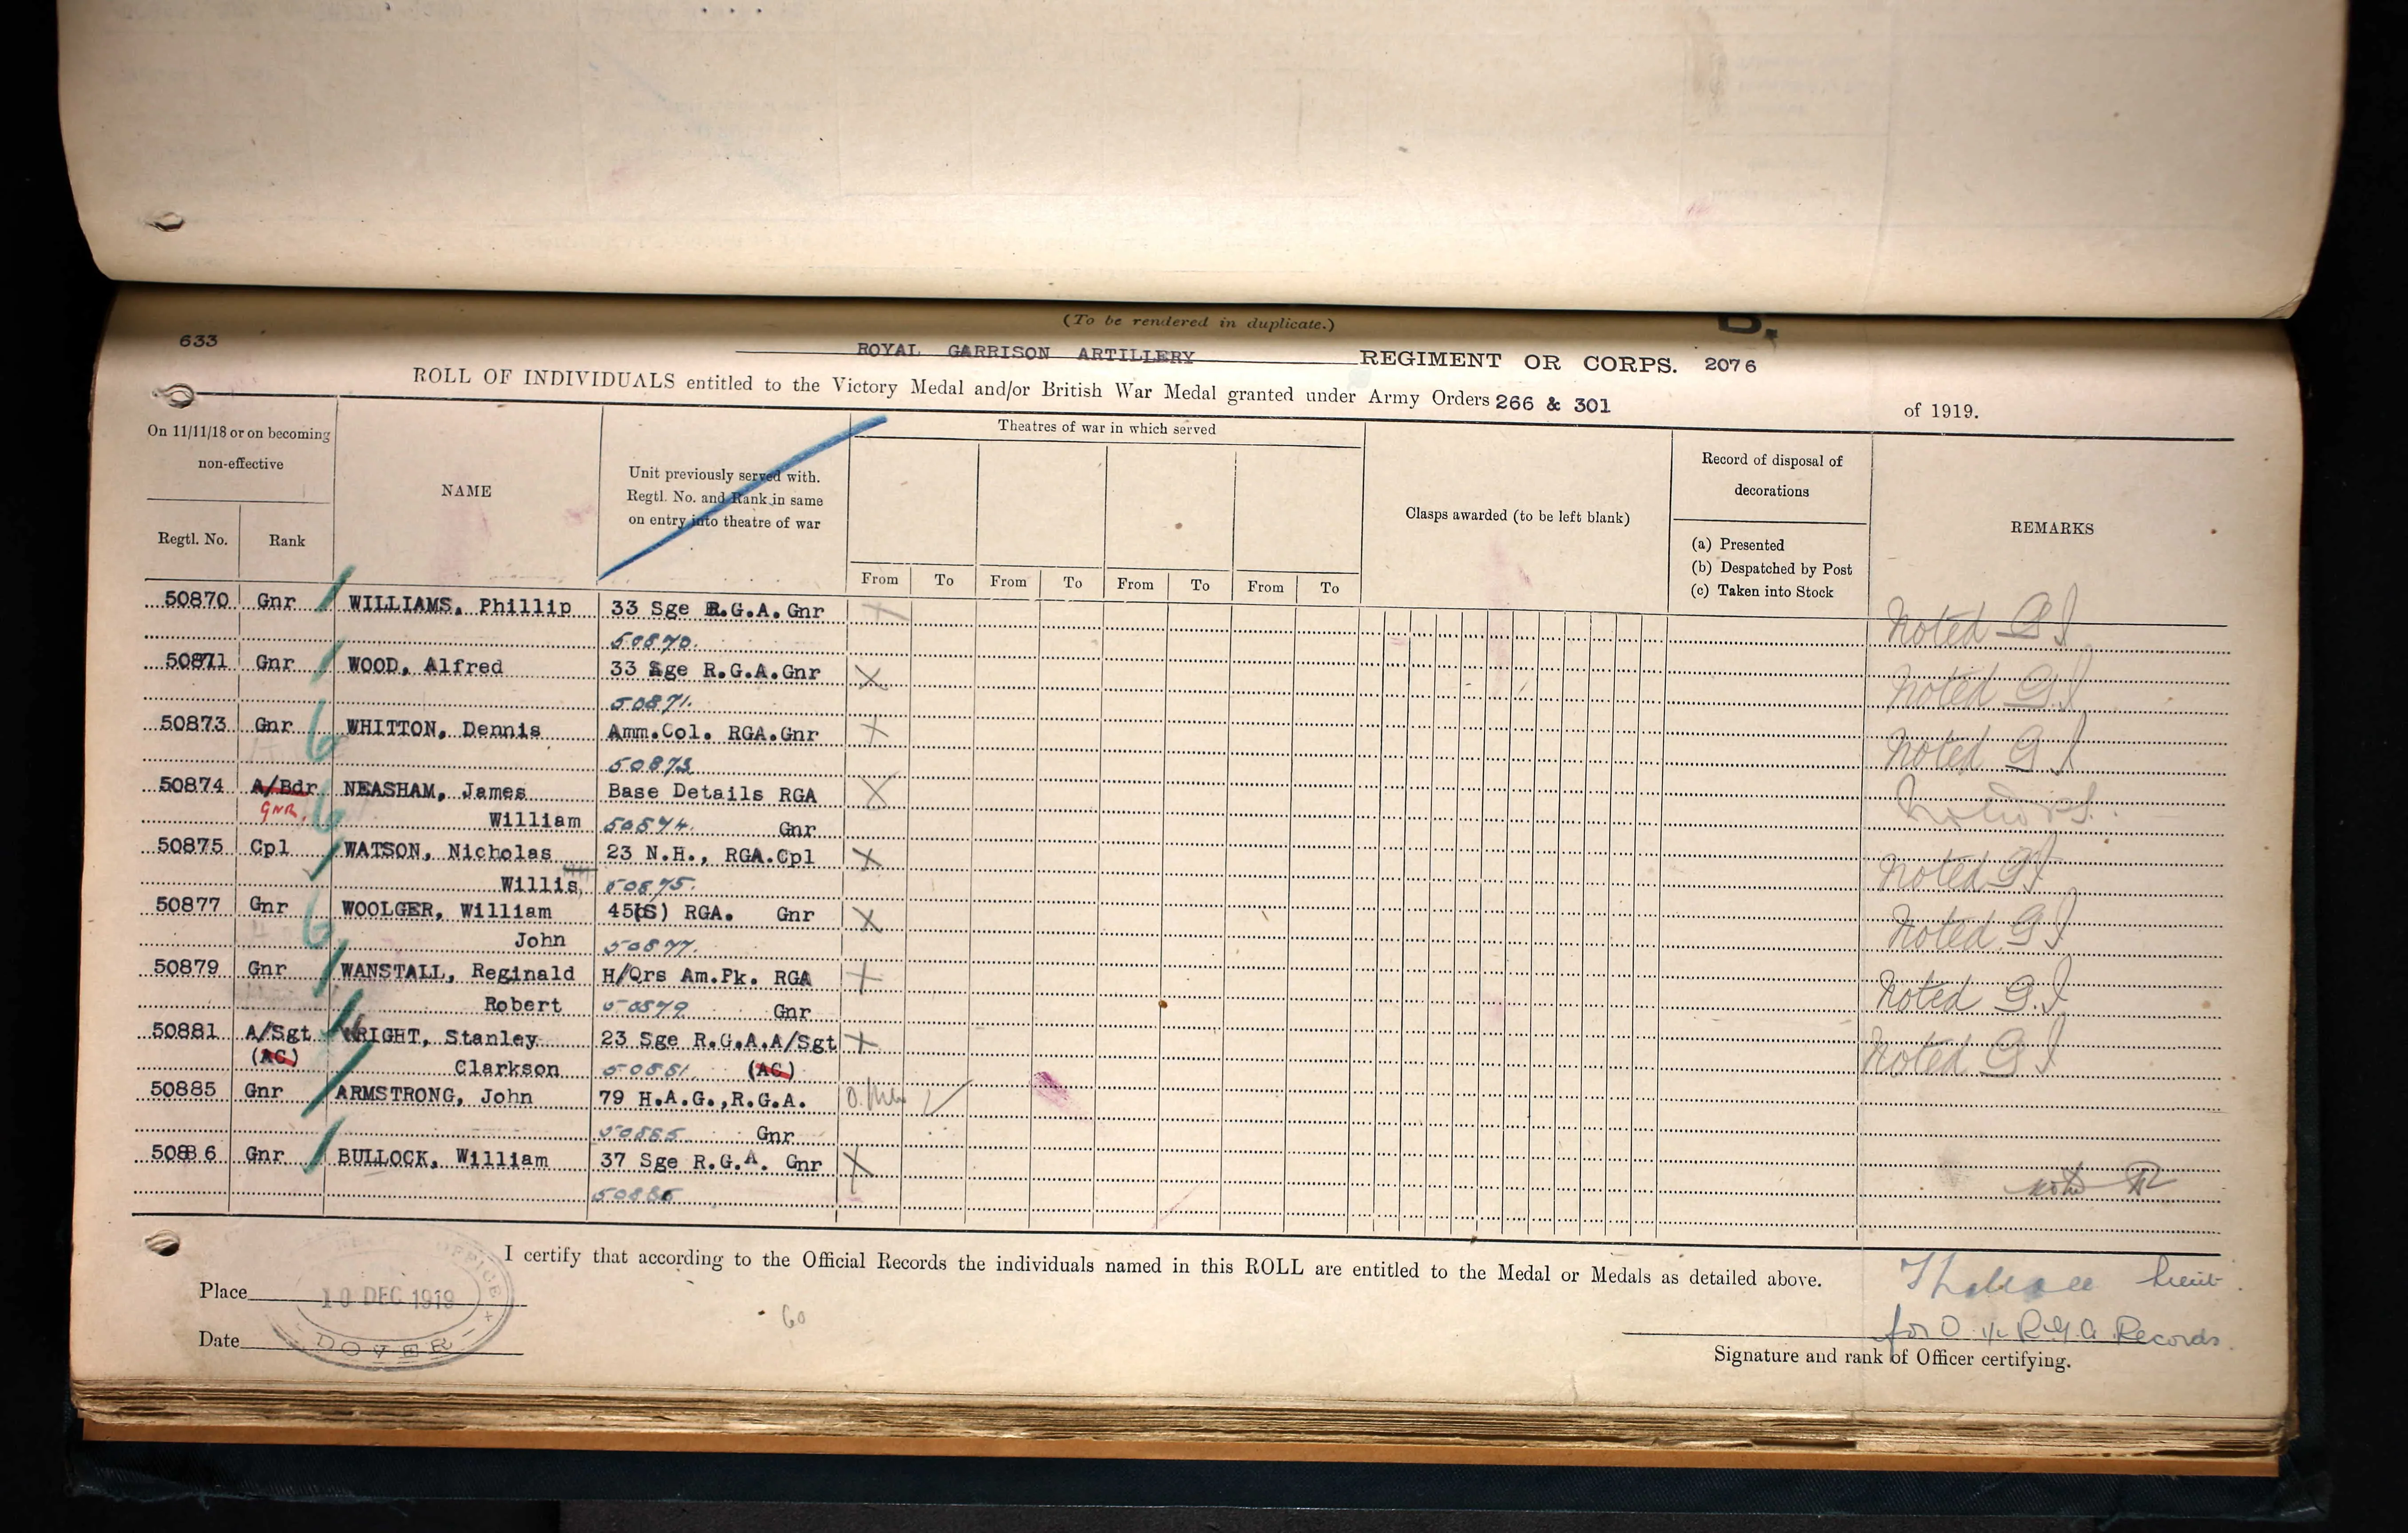 (To be rendered in duplicate.)
B.
633
ROYAL GARRISON ARTILLERY REGIMENT OR CORPS. 2076
ROLL OF INDIVIDUALS entitled to the Victory Medal and/or British War Medal granted under Army Orders 266 & 301 of 1919.
On 11/11/18 or on becoming non-effective
Regtl. No. Rank
NAME
Unit previously served with.
Regtl. No. and Rank in same
on entry into theatre of war
Theatres of war in which served
From To From To From To From To
Clasps awarded (to be left blank)
Record of disposal of
decorations
(a) Presented
(b) Despatched by Post
(c) Taken into Stock
REMARKS
50870 Gnr WILLIAMS, Phillip 33 Sge R.G.A.Gnr X Noted G I
50870.
50871 Gnr WOOD, Alfred 33 Sge R.G.A.Gnr X Noted G.I
50871.
50873 Gnr WHITTON, Dennis Amm.Col. RGA.Gnr X Noted G I
50873
50874 A/Bdr NEASHAM, James Base Details RGA X
GNR. William 50874. Gnr
50875 Cpl WATSON, Nicholas 23 N.H., RGA.Cpl X Noted GI
Willis 50875.
50877 Gnr WOOLGER, William 45(S) RGA. Gnr X Noted G I
John 50877.
50879 Gnr WANSTALL, Reginald H/Qrs Am.Pk. RGA X Noted G.I
Robert 50879 Gnr
50881 A/Sgt WRIGHT, Stanley 23 Sge R.G.A.A/Sgt X Noted G I
(AC) Clarkson 50881. (AC)
50885 Gnr ARMSTRONG, John 79 H.A.G.,R.G.A.
50885 Gnr
50886 Gnr BULLOCK, William 37 Sge R.G.A. Gnr X
50886
I certify that according to the Official Records the individuals named in this ROLL are entitled to the Medal or Medals as detailed above.
Lieut.
for O i/c R.G.A Records.
Place
10 DEC 1919
OFFICE
DOVER
Date
60
Signature and rank of Officer certifying.